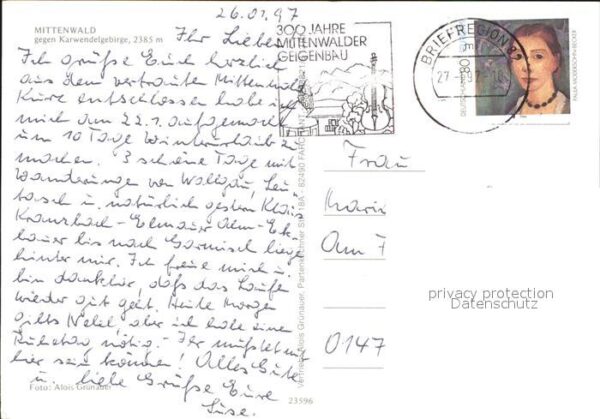 26.01.97
MITTENWALD
gegen Karwendelgebirge, 2385 m
Ihr Lieben
Ich grüße Euch herzlich
aus dem vertrauten Mittenwald
Kurz entschlossen habe ich
mich am 22.1. aufgemacht
um 10 Tage Winterurlaub zu
machen. 3 schöne Tage mit
Wanderungen von Wallgau, Leu-
tasch u. natürlich gestern Klais
Kranzbach - Elmauer Alm - Eck-
bauer bis nach Garmisch liegen
hinter mir. Ich freue mich u.
bin dankbar, daß das Laufen
wieder gut geht. Heute Morgen
gibts Nebel, aber ich habe einen
Ruhetag nötig. - Ihr müßtet mit
hier sein können! Alles Gute
u. liebe Grüße Eure
Suse.
Foto: Alois Grünauer
23596
Vertrieb: Alois Grünauer, Partenkirchner Str. 18A - 82490 FARCHANT
300 JAHRE
MITTENWALDER
GEIGENBAU
BRIEFREGION
DEUTSCHE
100
PAULA MODERSOHN-BECKER
Frau
Am
0147
privacy protection
Datenschutz